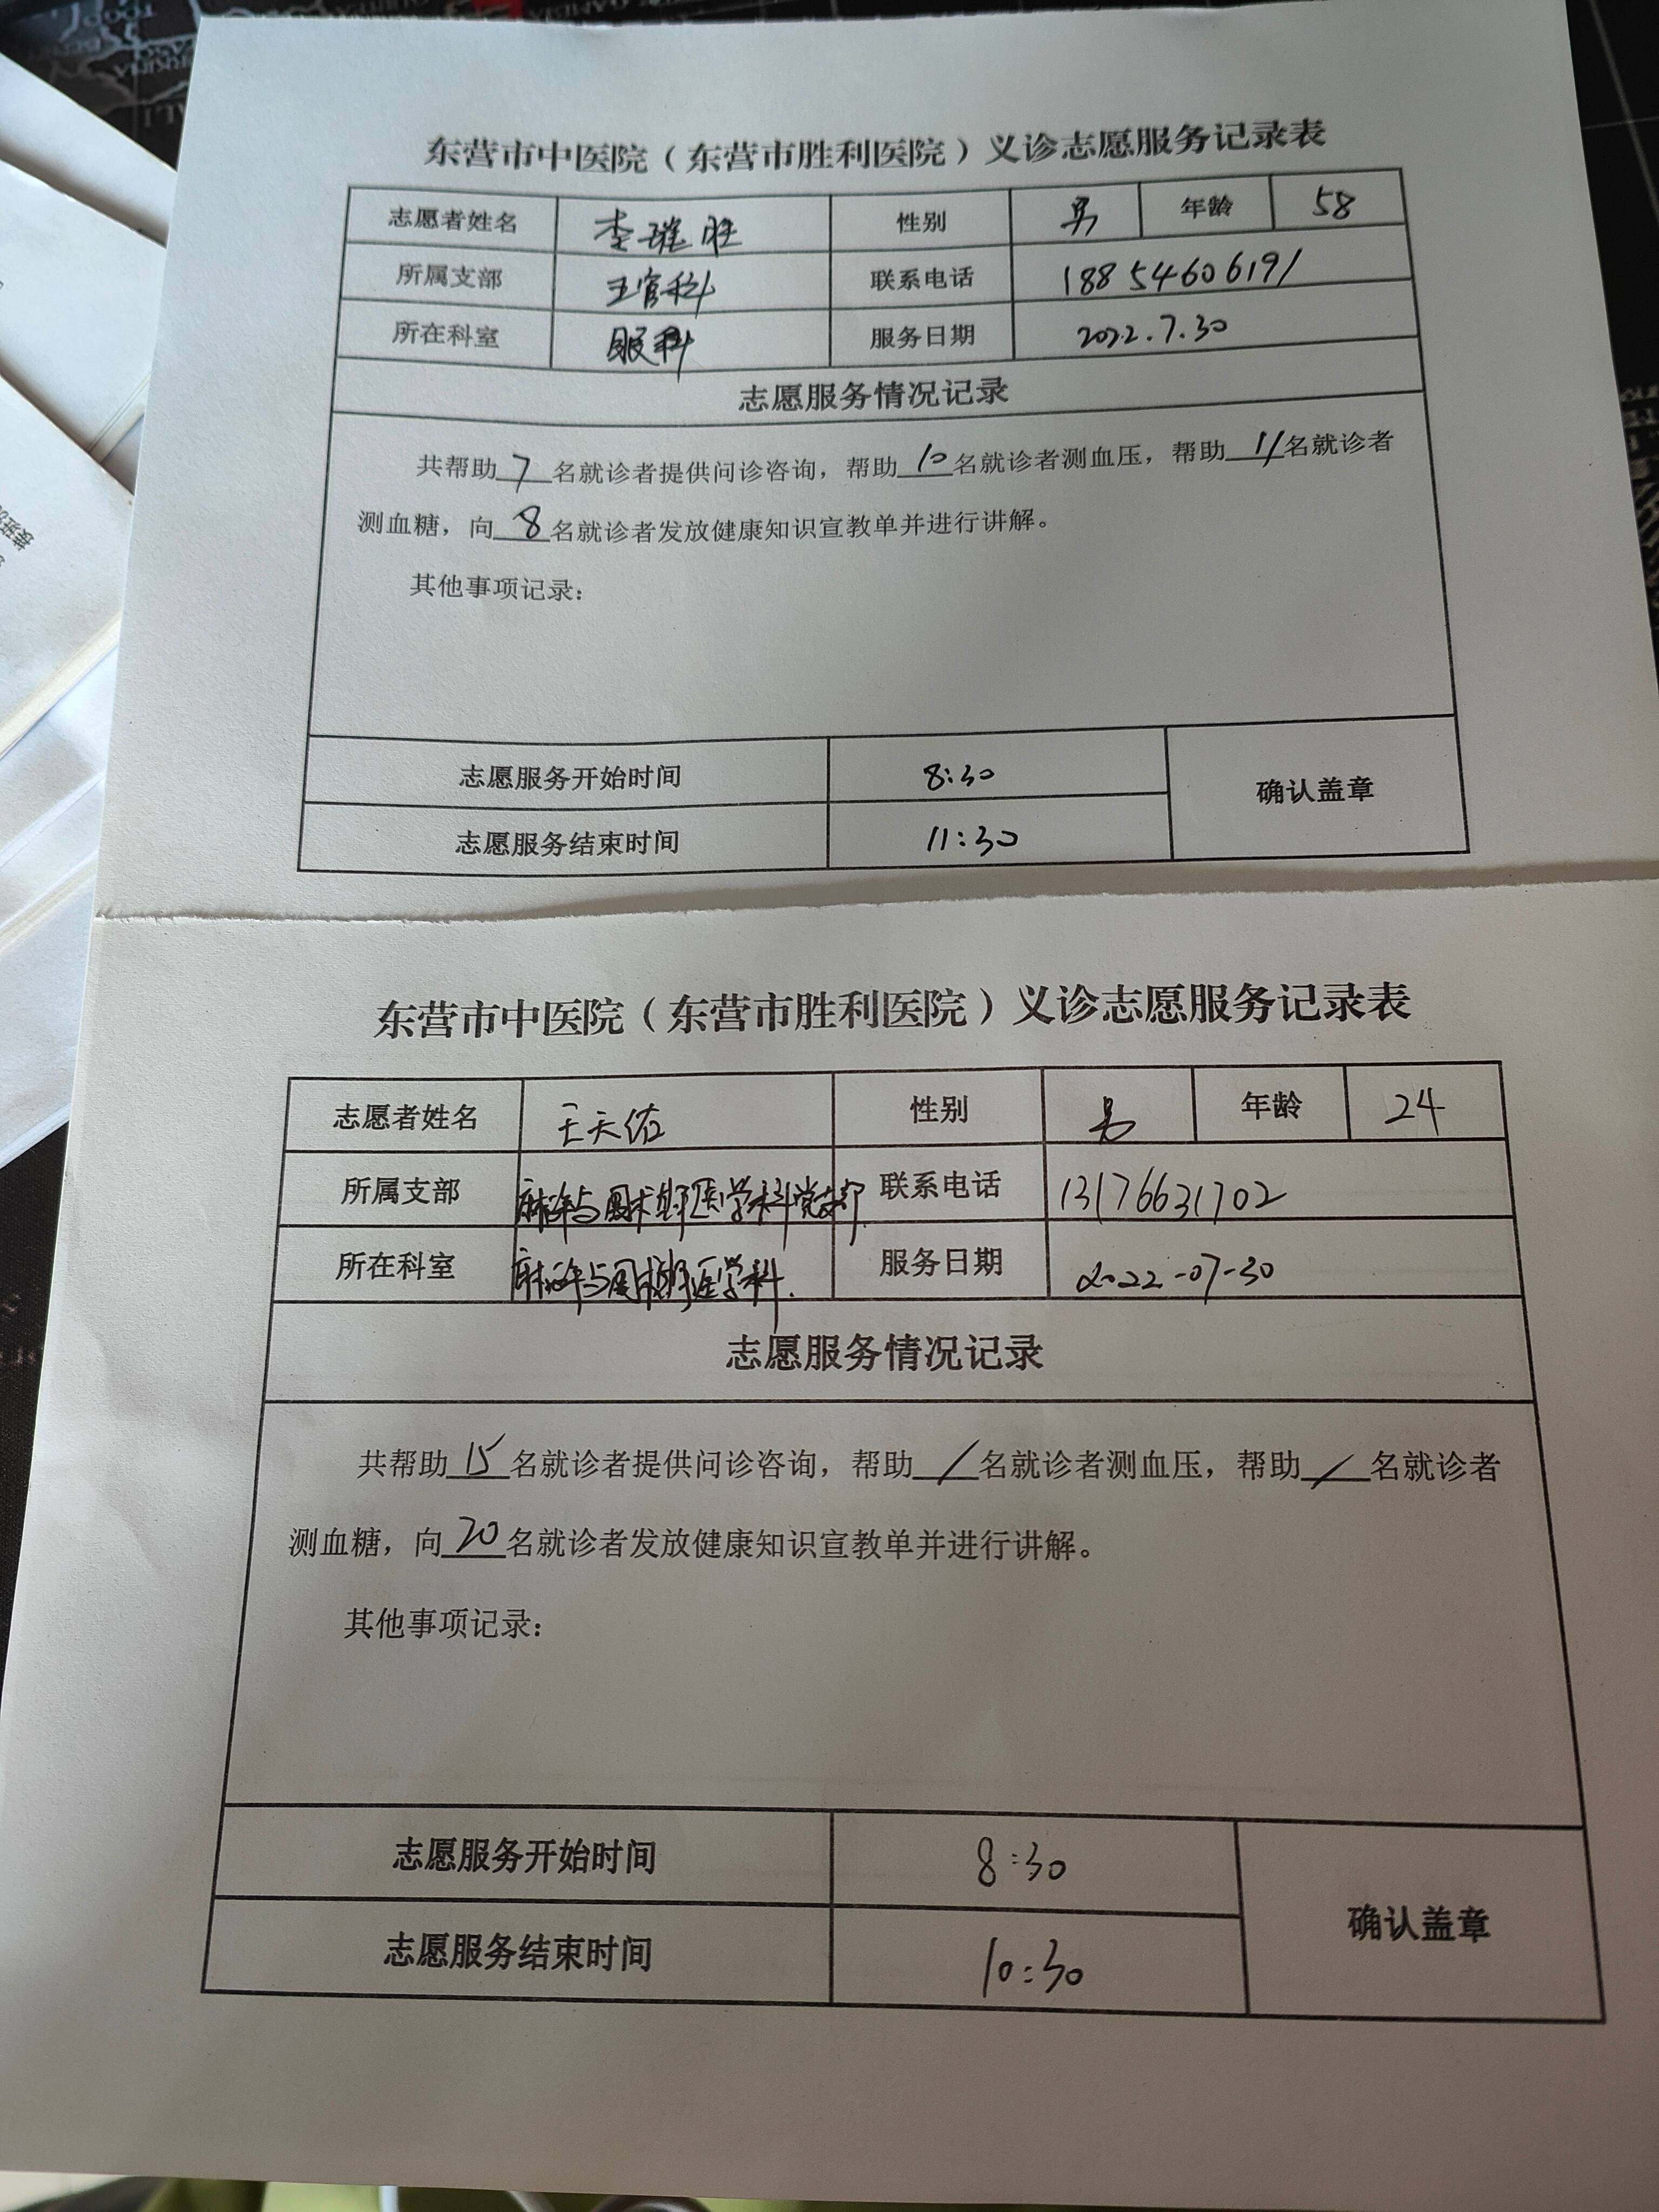 东营市中医院（东营市胜利医院）义诊志愿服务记录表
志愿者姓名 李瑞胜 性别 男 年龄 58
所属支部 五官科 联系电话 18854606191
所在科室 眼科 服务日期 2022.7.30
志愿服务情况记录
共帮助7名就诊者提供问诊咨询，帮助10名就诊者测血压，帮助11名就诊者
测血糖，向8名就诊者发放健康知识宣教单并进行讲解。
其他事项记录：
志愿服务开始时间 8:30
确认盖章
志愿服务结束时间 11:30
东营市中医院（东营市胜利医院）义诊志愿服务记录表
志愿者姓名 王天佑 性别 男 年龄 24
所属支部 麻醉与围术期医学科党支部 联系电话 13176631702
所在科室 麻醉与围术期医学科. 服务日期 2022-07-30
志愿服务情况记录
共帮助15名就诊者提供问诊咨询，帮助/名就诊者测血压，帮助/名就诊者
测血糖，向20名就诊者发放健康知识宣教单并进行讲解。
其他事项记录：
志愿服务开始时间 8:30
确认盖章
志愿服务结束时间 10:30